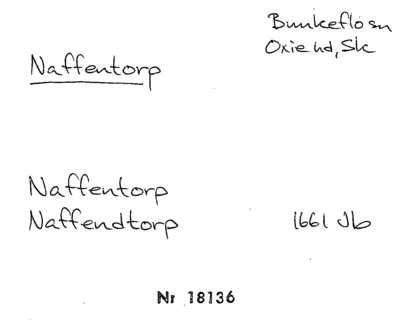 Bunkeflo sn
Oxie hd, Sk
Naffentorp
Naffentorp
Naffendtorp 1661 Jb
Nr 18136